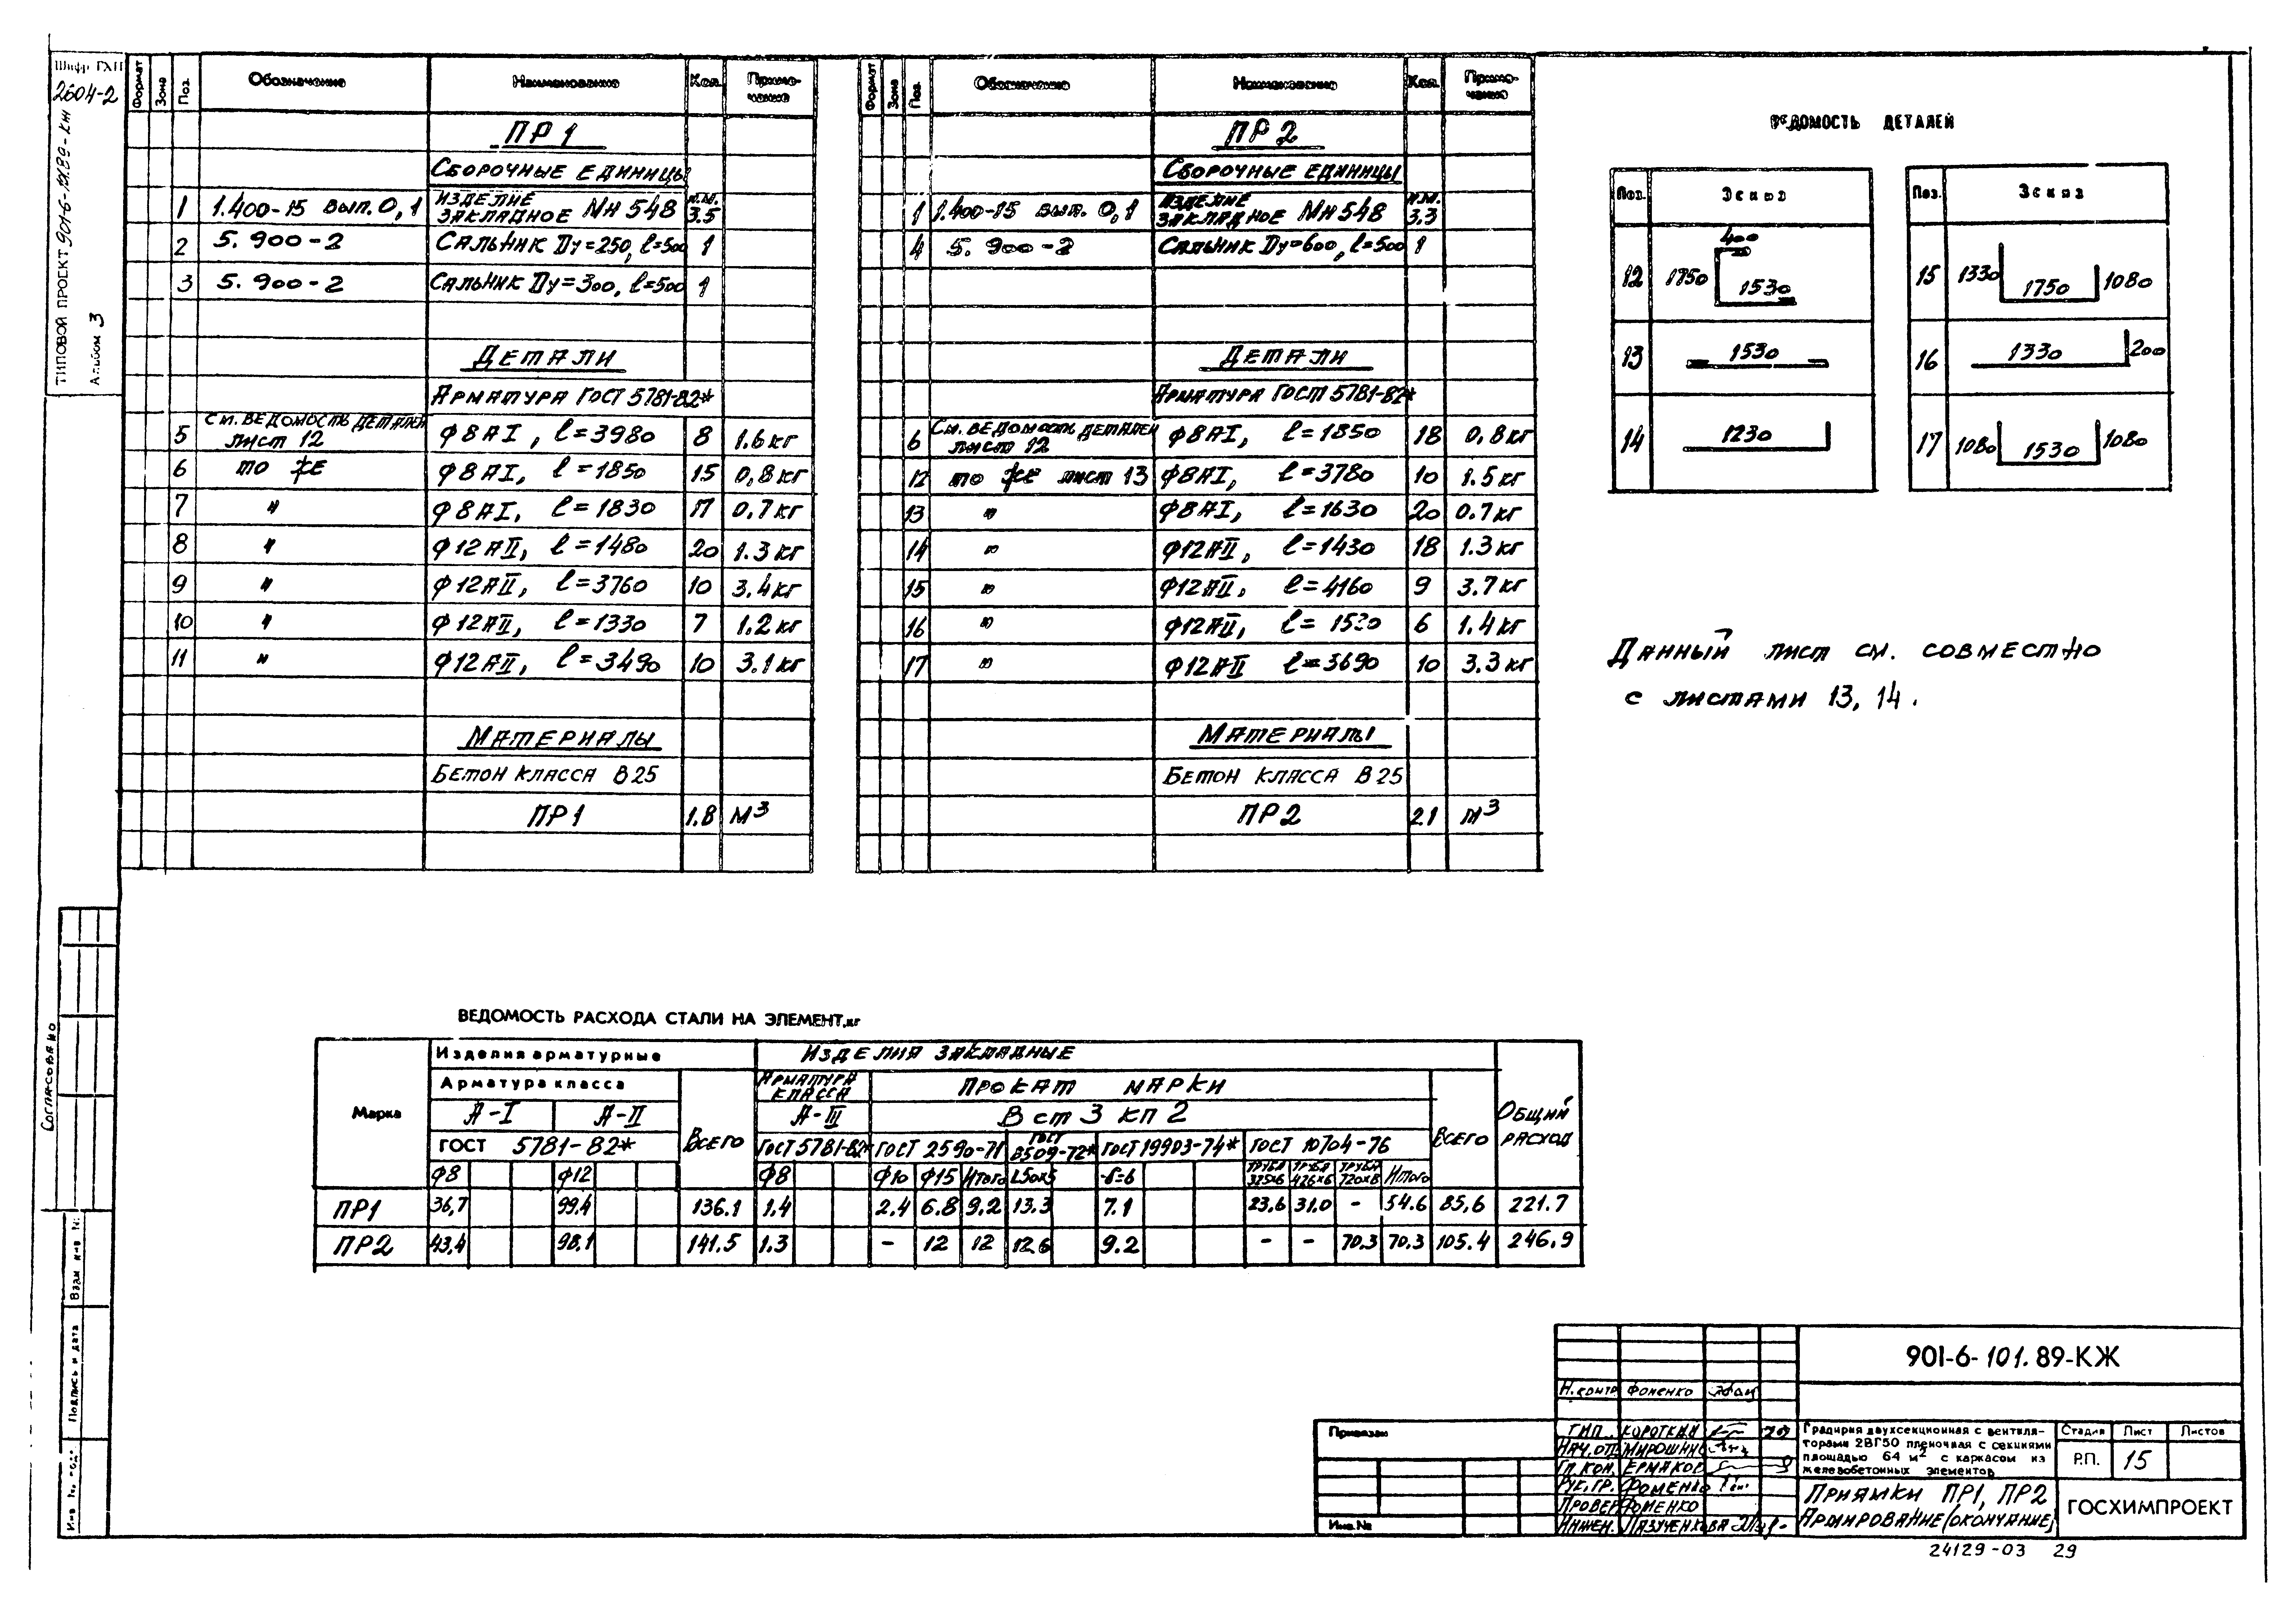 Шифр ГХП
2604-2
ТИПОВОЙ ПРОЕКТ 901-6-101.89-КЖ
Альбом 3
Формат Зона Поз. Обозначение Наименование Кол. Приме-чание
ПР1
Сборочные единицы
1 1.400-15 вып. 0,1 Изделие закладное МН 548 п.м. 3.5
2 5.900-2 Сальник Dу=250, ℓ=500 1
3 5.900-2 Сальник Dу=300, ℓ=500 1
Детали
Арматура ГОСТ 5781-82*
5 См. ведомость деталей лист 12 Ф8АI, ℓ=3980 8 1.6 кг
6 то же Ф8АI, ℓ=1850 15 0,8 кг
7 " Ф8АI, ℓ=1830 17 0.7 кг
8 " Ф12АII, ℓ=1480 20 1.3 кг
9 " Ф12АII, ℓ=3760 10 3.4 кг
10 " Ф12АII, ℓ=1330 7 1.2 кг
11 " Ф12АII, ℓ=3490 10 3.1 кг
Материалы
Бетон класса В25
ПР1 1.8 м³
Формат Зона Поз. Обозначение Наименование Кол. Приме-чание
ПР2
Сборочные единицы
1 1.400-15 вып. 0,1 Изделие закладное МН 548 п.м. 3,3
4 5.900-2 Сальник Dу=600, ℓ=500 1
Детали
Арматура ГОСТ 5781-82*
6 См. ведомость деталей лист 12 Ф8АI, ℓ=1850 18 0,8 кг
12 то же лист 13 Ф8АI, ℓ=3780 10 1.5 кг
13 " Ф8АI, ℓ=1630 20 0.7 кг
14 " Ф12АII, ℓ=1430 18 1.3 кг
15 " Ф12АII, ℓ=4160 9 3.7 кг
16 " Ф12АII, ℓ=1530 6 1.4 кг
17 " Ф12АII ℓ=3690 10 3.3 кг
Материалы
Бетон класса В25
ПР2 2.1 м³
ВЕДОМОСТЬ ДЕТАЛЕЙ
Поз. Эскиз
12 400 1750 1530
13 1530
14 1230
Поз. Эскиз
15 1330 1750 1080
16 1330 200
17 1080 1530 1080
Данный лист см. совместно
с листами 13, 14.
ВЕДОМОСТЬ РАСХОДА СТАЛИ НА ЭЛЕМЕНТ, кг
Марка Изделия арматурные Изделия закладные Общий расход
Арматура класса Всего Арматура класса Прокат марки Всего
А-I А-II А-III Вст3 кп2
ГОСТ 5781-82* ГОСТ 5781-82* ГОСТ 2590-71 ГОСТ 8509-72* ГОСТ 19903-74* ГОСТ 10704-76
Ф8 Ф12 Ф8 Ф10 Ф15 Итого L50х5 -δ=6 Труба 325х6 Труба 426х6 Труба 720х8 Итого
ПР1 36,7 99.4 136.1 1.4 2.4 6.8 9.2 13.3 7.1 23.6 31.0 - 54.6 85,6 221.7
ПР2 43,4 98,1 141.5 1.3 - 12 12 12.6 9.2 - - 70.3 70.3 105.4 246.9
Согласовано
Взам инв №
Подпись и дата
Инв № подл
901-6-101.89-КЖ
Н.контр Фоменко
ГИП. Короткий
Нач.от. Мирошник
Гл.кон. Ермаков
Рук.гр. Фоменко
Провер Фоменко
Инжен. Лазученкова
Привязан
Инв.№
Градирня двухсекционная с вентиля-
торами 2ВГ50 пленочная с секциями
площадью 64 м² с каркасом из
железобетонных элементов
Стадия Лист Листов
Р.П. 15
Приямки ПР1, ПР2
Армирование (окончание)
ГОСХИМПРОЕКТ
24129-03 29